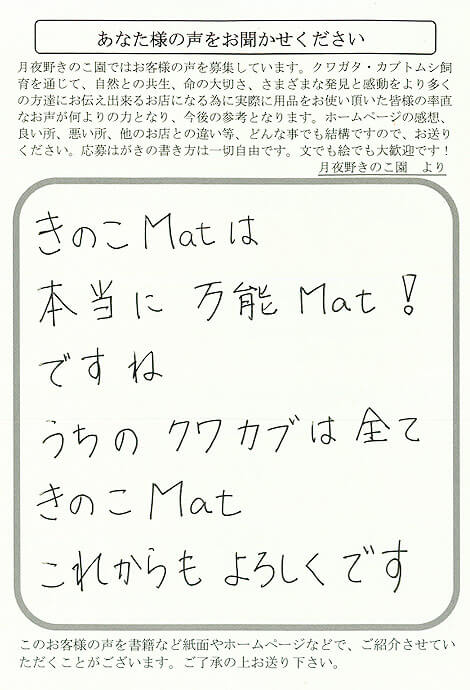 あなた様の声をお聞かせください
月夜野きのこ園ではお客様の声を募集しています。クワガタ・カブトムシ飼
育を通じて、自然との共生、命の大切さ、さまざまな発見と感動をより多く
の方達にお伝え出来るお店になる為に実際に用品をお使い頂いた皆様の率直
なお声が何よりの力となり、今後の参考となります。ホームページの感想、
良い所、悪い所、他のお店との違い等、どんな事でも結構ですので、お送り
ください。応募はがきの書き方は一切自由です。文でも絵でも大歓迎です！
月夜野きのこ園　より
きのこMatは
本当に 万能 Mat！
ですね
うちの クワカブは 全て
きのこMat
これからも よろしくです
このお客様の声を書籍など紙面やホームページなどで、ご紹介させてい
ただくことがございます。ご了承の上お送り下さい。